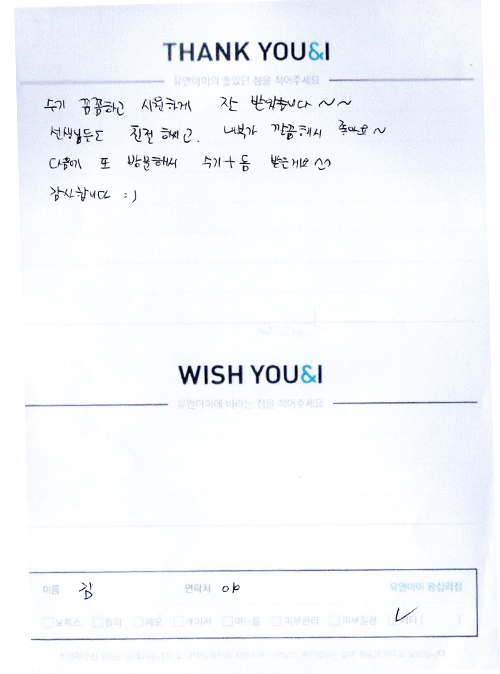 THANK YOU&I
유앤아이의 좋았던 점을 적어주세요
수기 꼼꼼하고 시원하게 잘 받았습니다 ~~
선생님들도 친절하시고, 내부가 깔끔해서 좋아요~
다음에 또 방문해서 수기+톰 받을게요 ^^
감사합니다 :)
WISH YOU&I
유앤아이에 바라는 점을 적어주세요
이름 김 연락처 010 유앤아이 왕십리점
보톡스 필러 제모 레이저 여드름 피부관리 피부질환 기타 ( )